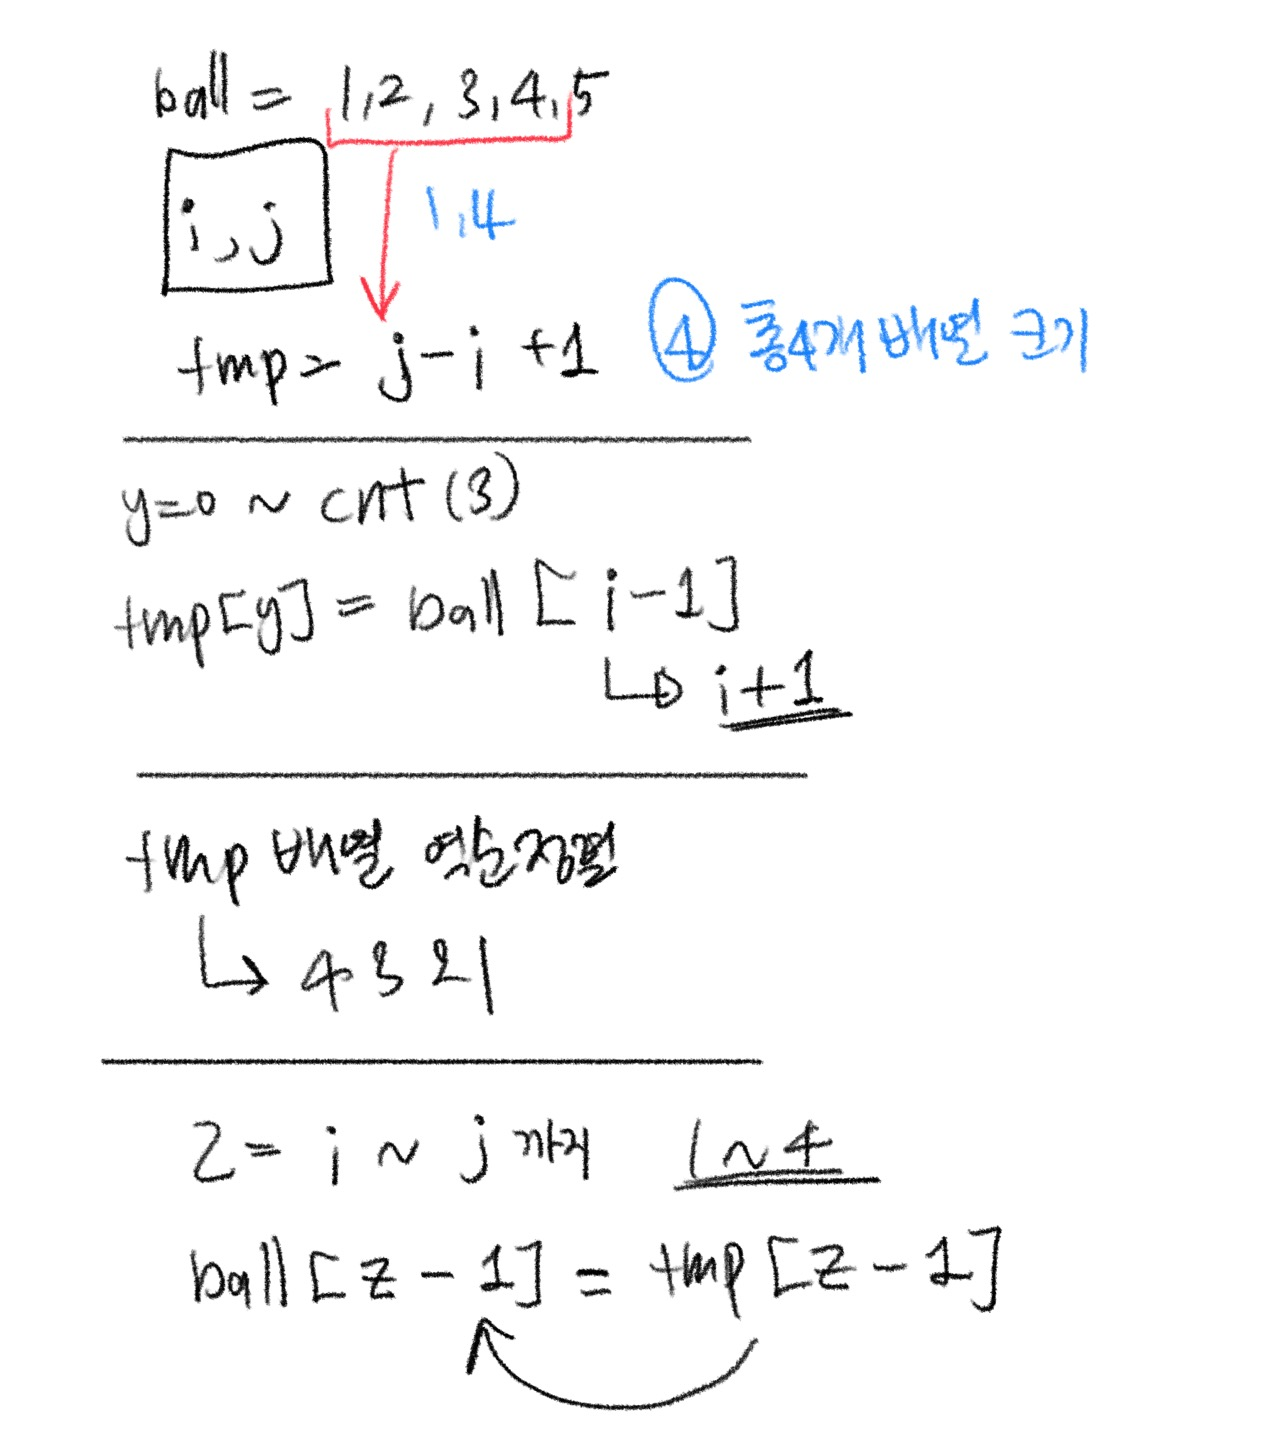 ball = 1,2, 3,4,5
i, j
1,4
tmp = j-i +1
4 총4개 배열 크기
y=0 ~ cnt (3)
tmp[y] = ball [i-1]
i+1
tmp 배열 역순정렬
4 3 2 1
z = i ~ j 까지 1~4
ball [z-1] = tmp [z-1]